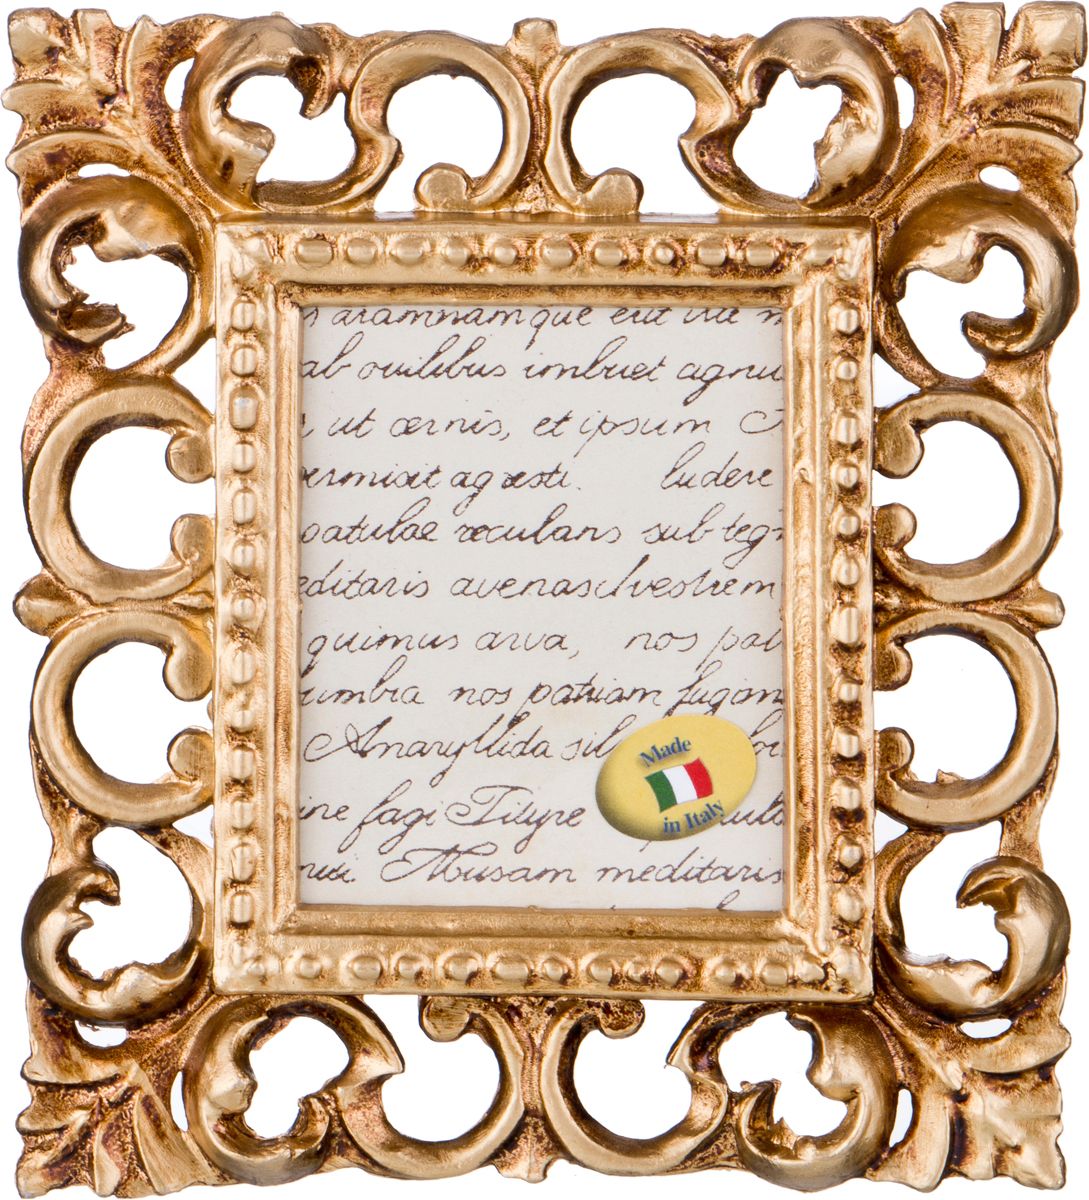 aramnamque erit ille
ab ouilibus imbuet agnu
, ut cernis, et ipsum
permisit agresti. ludere
patulae reculans sub tegn
editaris avena silvestrem
quimus arva, nos pat
umbra nos patriam fugim
Amaryllida sil
ine fagi Tityre
Musam meditaris
Made
in Italy